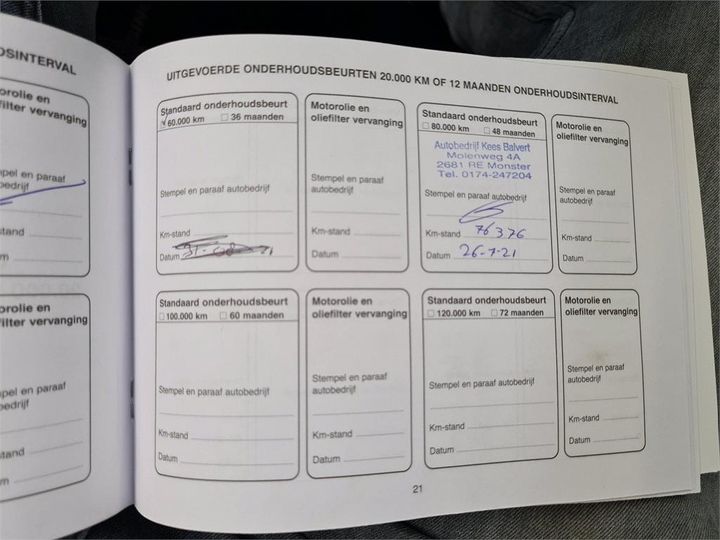 DSINTERVAL
orolie en
filter vervanging
pel en paraaf
bedrijf
tand
m
orolie en
ilter vervanging
pel en paraaf
bedrijf
tand
m
UITGEVOERDE ONDERHOUDSBEURTEN 20.000 KM OF 12 MAANDEN ONDERHOUDSINTERVAL
Standaard onderhoudsbeurt
60.000 km 36 maanden
Stempel en paraaf autobedrijf
Km-stand
Datum 31-08-21
Motorolie en
oliefilter vervanging
Stempel en paraaf
autobedrijf
Km-stand
Datum
Standaard onderhoudsbeurt
80.000 km 48 maanden
Autobedrijf Kees Balvert
Molenweg 4A
2681 RE Monster
Tel. 0174-247204
Stempel en paraaf autobedrijf
Km-stand 76376
Datum 26-7-21
Motorolie en
oliefilter vervanging
Stempel en paraaf
autobedrijf
Km-stand
Datum
Standaard onderhoudsbeurt
100.000 km 60 maanden
Stempel en paraaf autobedrijf
Km-stand
Datum
Motorolie en
oliefilter vervanging
Stempel en paraaf
autobedrijf
Km-stand
Datum
Standaard onderhoudsbeurt
120.000 km 72 maanden
Stempel en paraaf autobedrijf
Km-stand
Datum
Motorolie en
oliefilter vervanging
Stempel en paraaf
autobedrijf
Km-stand
Datum
21